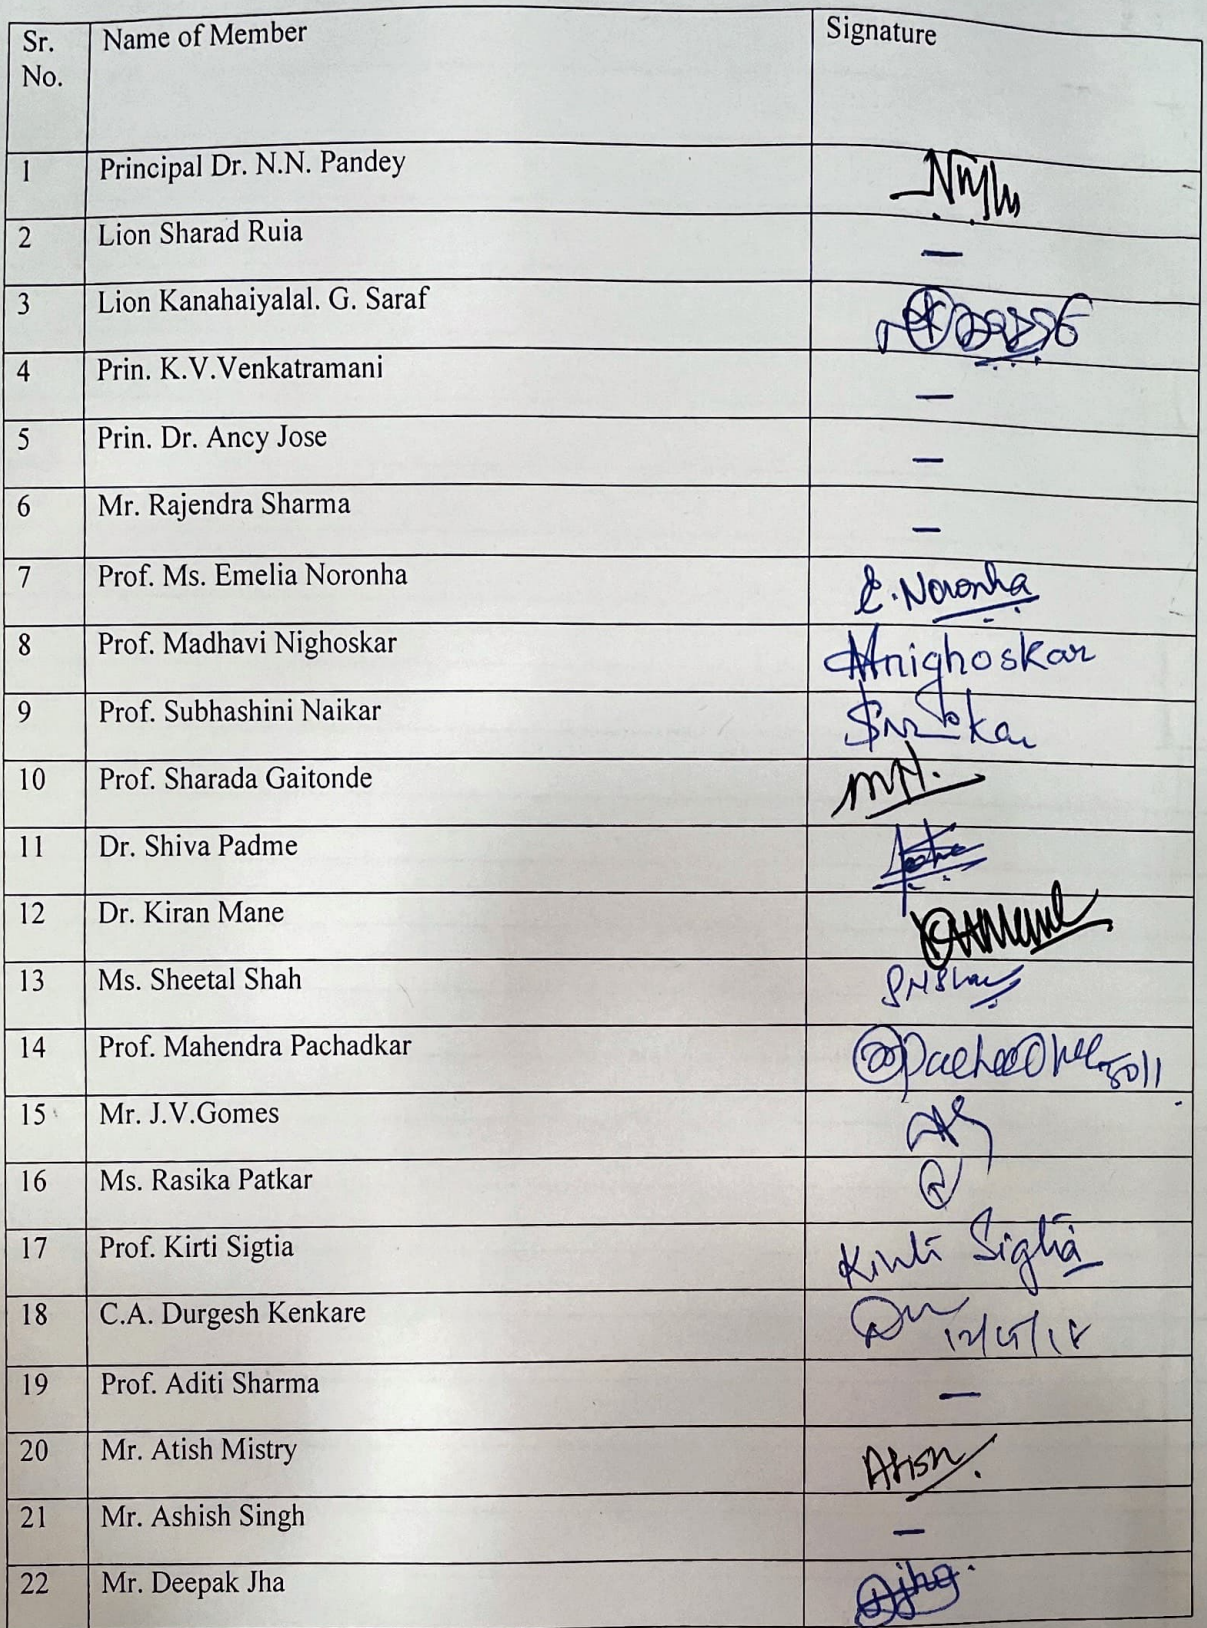 Sr. No. Name of Member Signature
1 Principal Dr. N.N. Pandey
2 Lion Sharad Ruia —
3 Lion Kanahaiyalal. G. Saraf
4 Prin. K.V.Venkatramani —
5 Prin. Dr. Ancy Jose —
6 Mr. Rajendra Sharma —
7 Prof. Ms. Emelia Noronha E. Noronha
8 Prof. Madhavi Nighoskar Mnighoskar
9 Prof. Subhashini Naikar
10 Prof. Sharada Gaitonde
11 Dr. Shiva Padme
12 Dr. Kiran Mane
13 Ms. Sheetal Shah
14 Prof. Mahendra Pachadkar
15 Mr. J.V.Gomes
16 Ms. Rasika Patkar
17 Prof. Kirti Sigtia Kirti Sigtia
18 C.A. Durgesh Kenkare
19 Prof. Aditi Sharma —
20 Mr. Atish Mistry Atish
21 Mr. Ashish Singh —
22 Mr. Deepak Jha Djha.